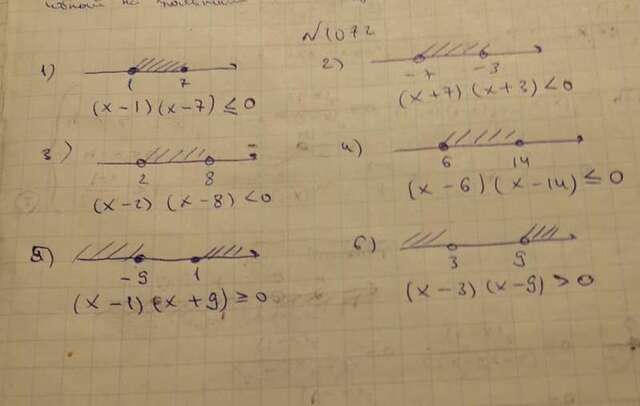 N1072
1)
1 7
(x-1)(x-7) ≤ 0
2)
-7 -3
(x+7) (x+3) < 0
3)
2 8
(x-2) (x-8) < 0
4)
6 14
(x-6) (x-14) ≤ 0
5)
-9 1
(x-1) (x+9) ≥ 0
6)
3 9
(x-3) (x-9) > 0